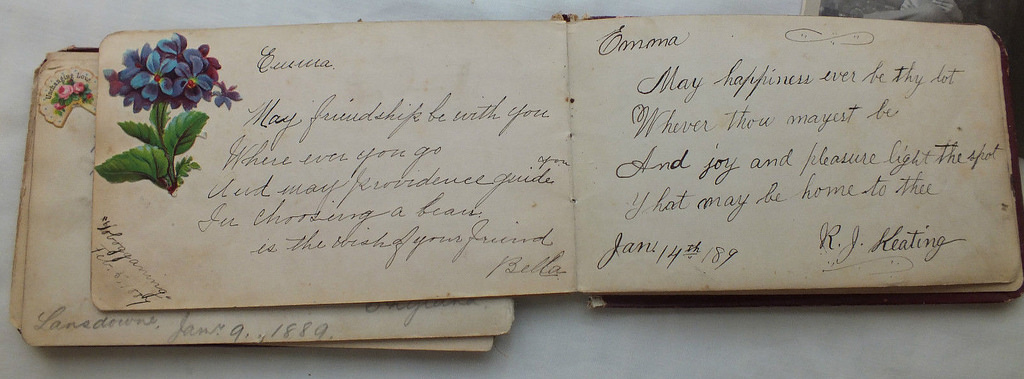 Emma.
May friendship be with you
Where ever you go
And may providence guide you
In choosing a beau.
is the wish of your friend
Bella
"Tobogganing"
Feb. 6.
Emma
May happiness ever be thy lot
Whever thou mayest be
And joy and pleasure light the spot
That may be home to thee
Jan. 14th 189
R. J. Keating
Unchanging Love
Lansdowne, Jany 9., 1889.